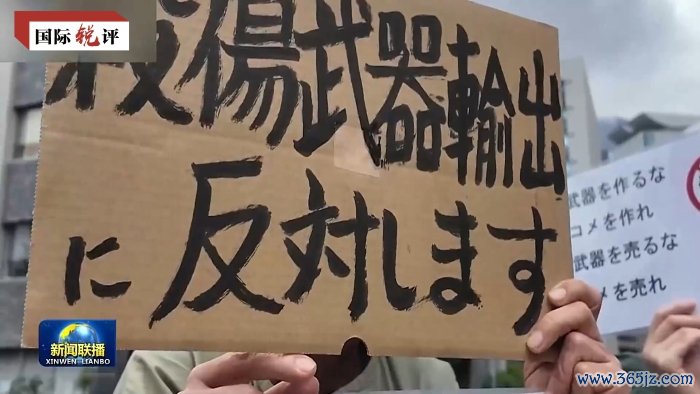 国际锐评
殺傷武器輸出
に反対します
武器を作るな
コメを作れ
武器を売るな
メを売れ
新闻联播
XINWEN LIANBO
www.365jz.com